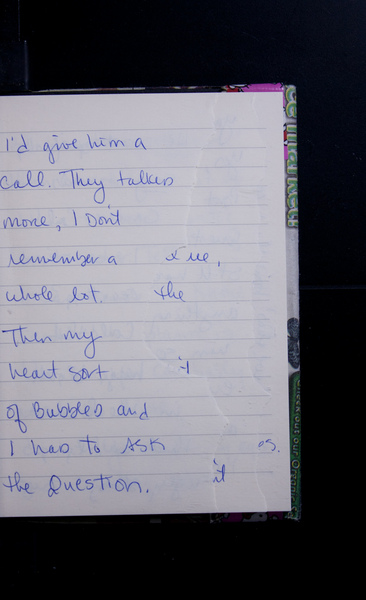 I'd give him a
call. They talked
more, I Don't
remember a
whole lot. the
Then my
heart sort
of Bubbled and
I had to ASK
the Question. it